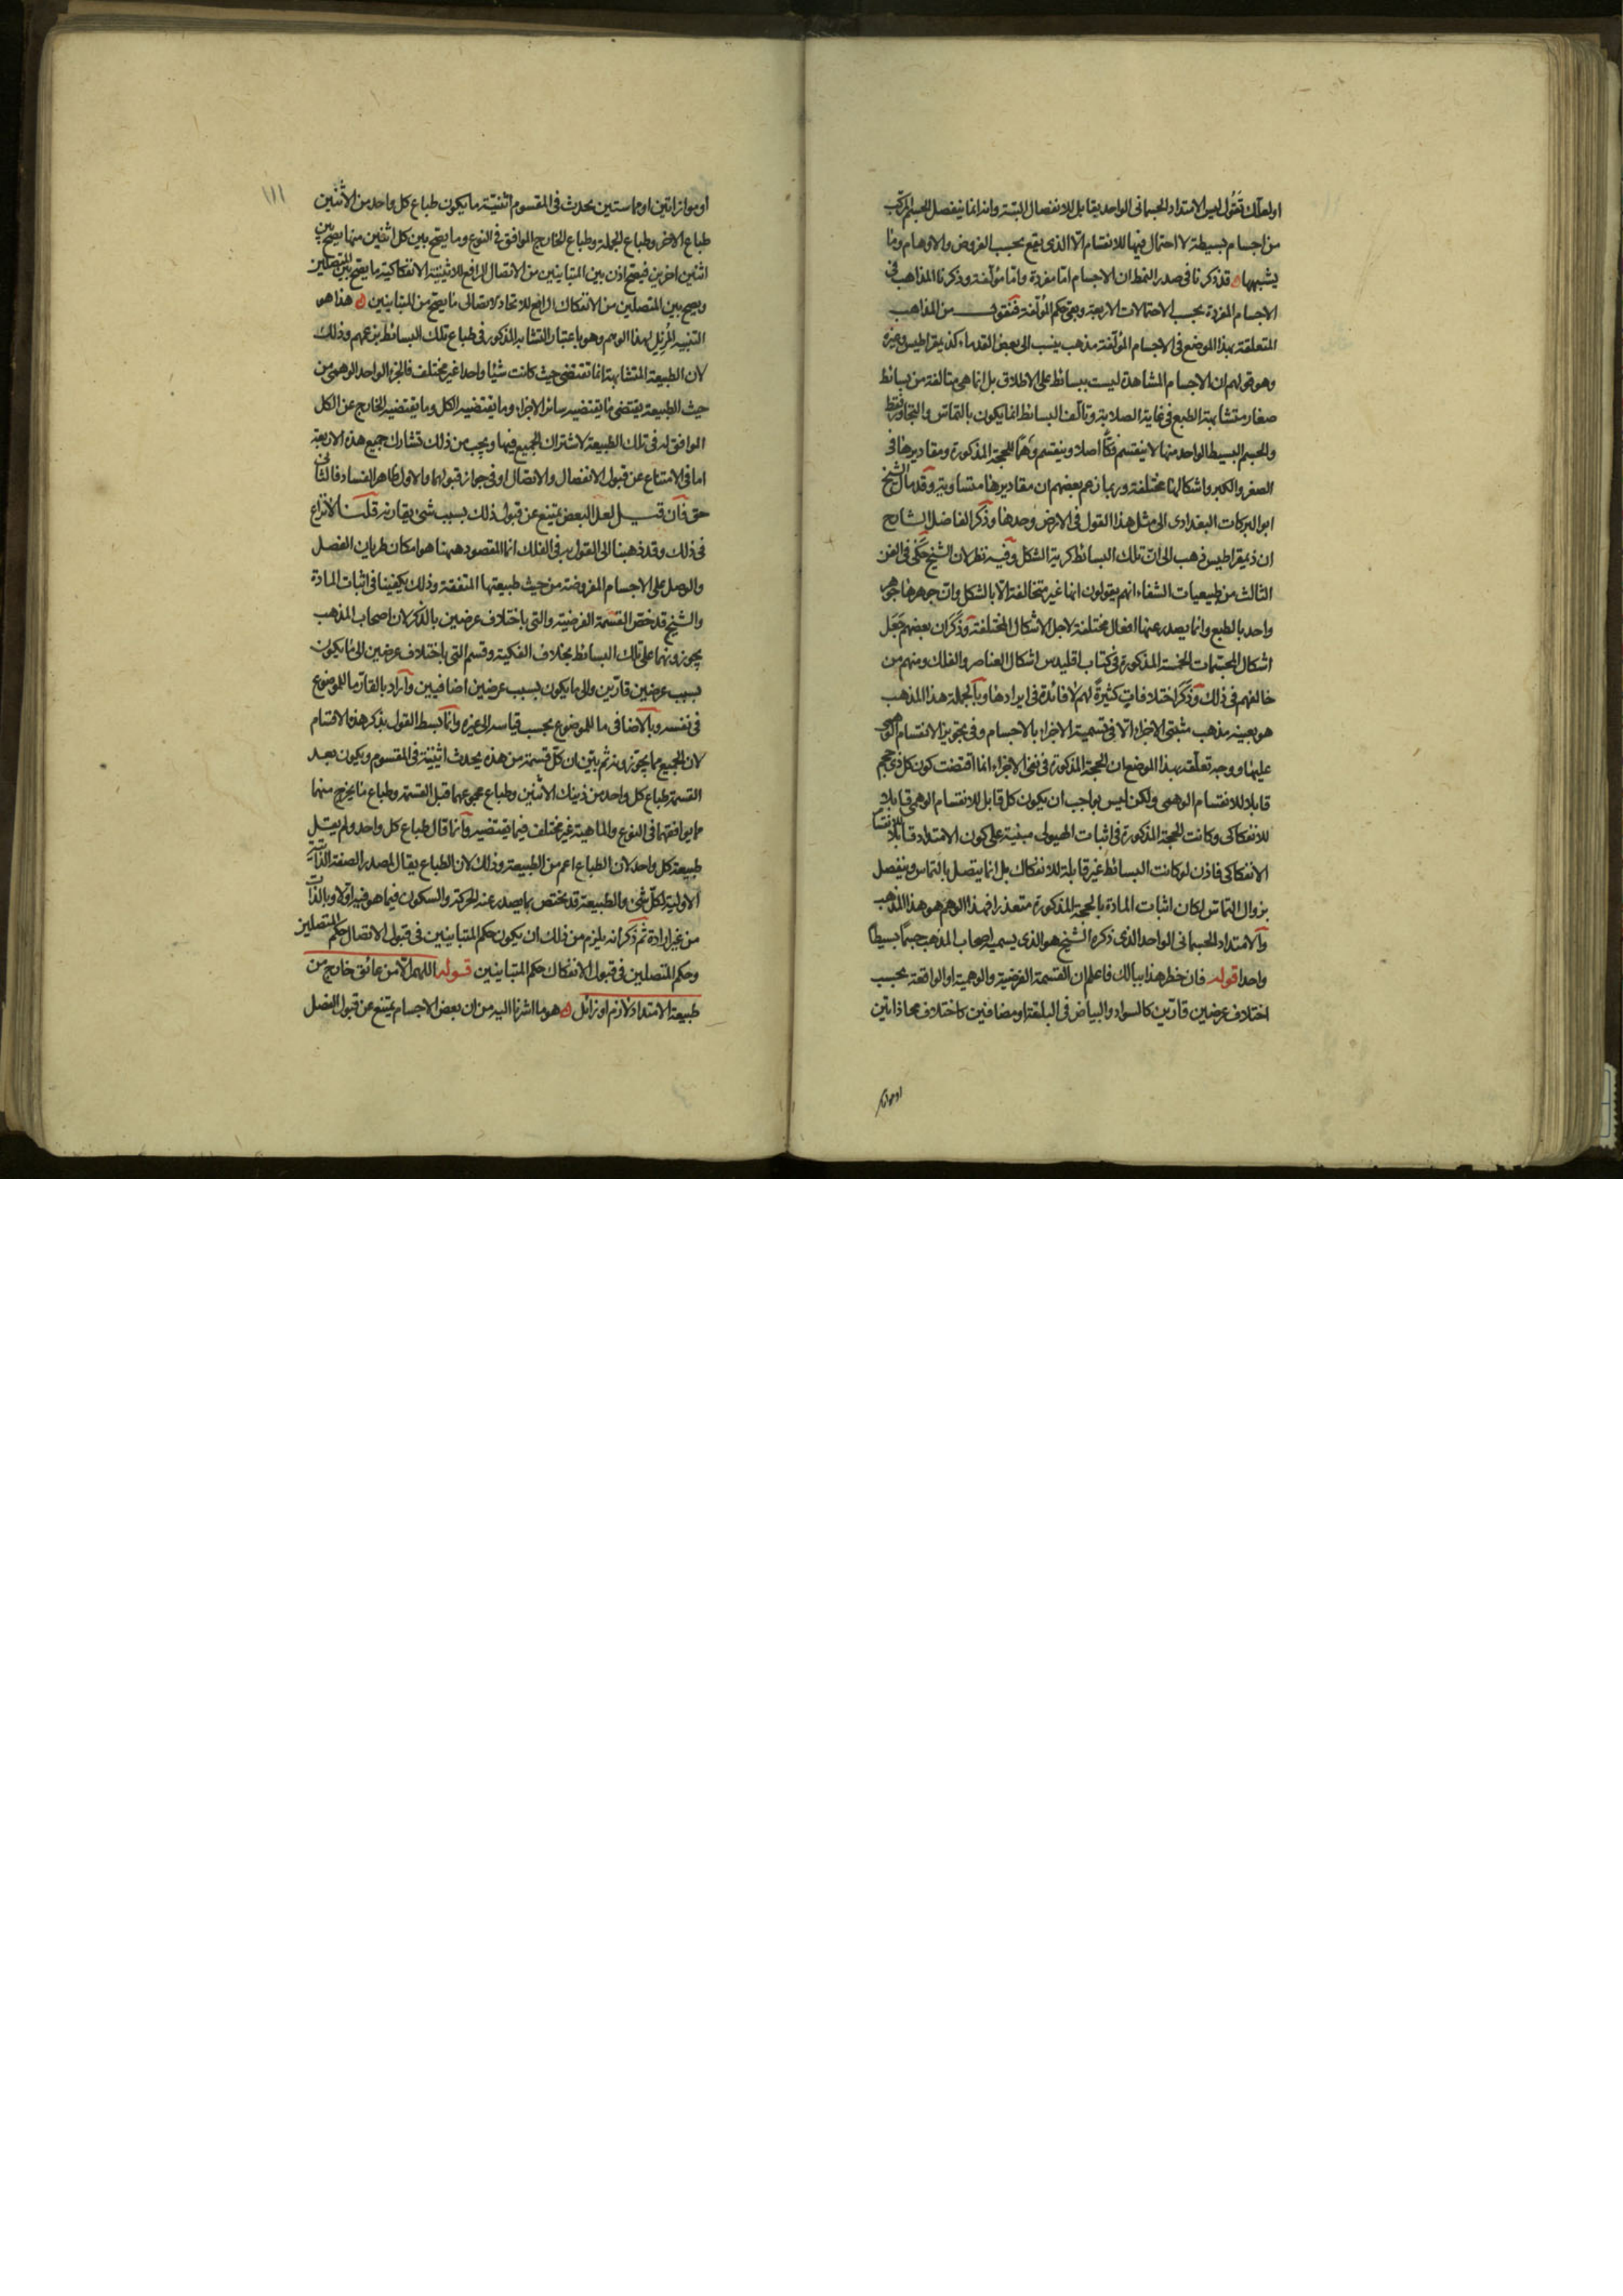 او لعلك تقول ليس الامتداد الجسمانى الواحد يقابل للانفصال البتة وانه انما ينفصل الجسم المركب
من اجسام بسيطة لا احتمال فيها للانقسام الا الذى يقع بحسب الفروض والاوهام وما
يشبهها ه قد ذكرنا فى صدر النمط ان الاجسام اما مفردة واما مؤلفة وذكرنا المذاهب فى
الاجسام المفردة بحسب الاحتمالات الاربعة وبقى حكم المؤلفة فنقول من المذاهب
المتعلقة بهذا الموضع فى الاجسام المؤلفة مذهب ينسب الى بعض القدماء كذيمقراطيس وغيره
وهو قولهم ان الاجسام المشاهدة ليست ببسائط على الاطلاق بل انما هى متالفة من بسائط
صغار متشابهة الطبع فى غاية الصلابة وتالف البسائط انما يكون بالتماس والتجاور فقط
والجسم البسيط الواحد منها لا ينقسم فكا اصلا وينقسم وهما للحجة المذكورة ومقاديرها فى
الصغر والكبر واشكالها مختلفة وربما زعم بعضهم ان مقاديرها متساوية وقد مال الشيخ
ابو البركات البغدادى الى مثل هذا القول فى الارض وحدها وذكر الفاضل الشارح
ان ذيمقراطيس ذهب الى ان تلك البسائط كرية الشكل وفيه نظر لان الشيخ حكى فى الفن
الثالث من طبيعيات الشفاء انهم يقولون انها غير متخالفة الا بالشكل وان جوهرها جوهر
واحد بالطبع وانما يصدر عنها افعال مختلفة لاجل الاشكال المختلفة وذكر ان بعضهم جعل
اشكال المجسمات الخمسة المذكورة فى كتاب اقليدس اشكال العناصر والفلك ومنهم من
خالفهم فى ذلك وذكر اختلافات كثيرة لهم لا فائدة فى ايرادها وبالجملة هذا المذهب
هو بعينه مذهب مثبتى الاجزاء الا فى تسمية الاجزاء بالاجسام وفى تجويز الانقسام الوهمى
عليها ووجه تعلقه بهذا الموضع ان الحجة المذكورة فى نفى الاجزاء انما اقتضت كون كل ذى حجم
قابلا للانقسام الوهمى ولكن ليس بواجب ان يكون كل قابل للانقسام الوهمى قابلا
للانفكاكى وكانت الحجة المذكورة فى اثبات الهيولى مبنية على كون الامتداد قابلا للانقسام
الانفكاكى فاذن لو كانت البسائط غير قابلة للانفكاك بل انما يتصل بالتماس وينفصل
بزوال التماس لكان اثبات المادة بالحجة المذكورة متعذرا فهذا الوهم هو هذا المذهب
والامتداد الجسمانى الواحد الذى ذكره الشيخ هو الذى يسميه اصحاب المذهب جسما بسيطا
واحدا قوله فان خطر هذا ببالك فاعلم ان القسمة الفرضية والوهمية او الواقعة بحسب
اختلاف عرضين قارين كالسواد والبياض فى البلقة او مضافين كاختلاف محاذاتين
او موازاتين
١١١
او موازاتين او مماستين يحدث فى المقسوم اثنينية ما يكون طباع كل واحد من الاثنين
طباع الاخر وطباع الجملة وطباع الخارج الموافق فى النوع وما يصح بين كل اثنين منها يصح بين
اثنين اخرين فيصح اذن بين المتباينين من الاتصال الرافع للاثنينية الانفكاكية ما يصح بين المتصلين
ويصح بين المتصلين من الانفكاك الرافع للاتحاد الاتصالى ما يصح من المتباينين ه هذا هو
التنبيه المزيل لهذا الوهم وهو باعتبار التشابه المذكور فى طباع تلك البسائط بزعمهم وذلك
لان الطبيعة المتشابهة انما تقتضى حيث كانت شيئا واحدا غير مختلف فالجزء الواحد الوهمى من
حيث الطبيعة يقتضى ما يقتضيه سائر الاجزاء وما يقتضيه الكل وما يقتضيه الخارج عن الكل
الموافق له فى تلك الطبيعة لاشتراك الجميع فيها ويجب من ذلك تشارك جميع هذه الاربعة
اما فى الامتناع عن قبول الانفصال والاتصال او فى جواز قبولهما والاول ظاهر الفساد فالثانى
حق فان قيل لعل البعض يمتنع عن قبول ذلك بسبب شىء يقارنه قلنا لا نزاع
فى ذلك وقد ذهبنا الى القول به فى الفلك انما المقصود ههنا هو امكان طريان الفصل
والوصل على الاجسام المفروضة من حيث طبيعتها المتفقة وذلك يكفينا فى اثبات المادة
والشيخ قد خص القسمة الفرضية والتى باختلاف عرضين بالذكر لان اصحاب المذهب
يجوزونهما على تلك البسائط بخلاف الفكية وقسم التى باختلاف عرضين الى ما يكون
بسبب عرضين قارين والى ما يكون بسبب عرضين اضافيين واراد بالقار ما للموضوع
فى نفسه وبالاضافى ما للموضوع بحسب قياسه الى غيره وانما بسط القول بذكر هذه الاقسام
لان الجميع مما يجوزونه ثم بين ان كل قسمة من هذه يحدث اثنينية فى المقسوم ويكون بعد
القسمة طباع كل واحد من ذينك الاثنين وطباع مجموعهما قبل القسمة وطباع ما يخرج منهما
مما يوافقهما فى النوع والماهية غير مختلف فيما يقتضيه وانما قال طباع كل واحد ولم يقل
طبيعة كل واحد لان الطباع اعم من الطبيعة وذلك لان الطباع يقال لمصدر الصفة الذاتية
الاولية لكل شىء والطبيعة قد تختص بما يصدر عنه الحركة والسكون فيما هو فيه اولا وبالذات
من غير ارادة ثم ذكر انه يلزم من ذلك ان يكون حكم المتباينين فى قبول الاتصال حكم المتصلين
وحكم المتصلين فى قبول الانفكاك حكم المتباينين قوله اللهم الا من عائق خارج من
طبيعة الامتداد لازم او زائل ه هو ما اشرنا اليه من ان بعض الاجسام يمتنع عن قبول الفصل